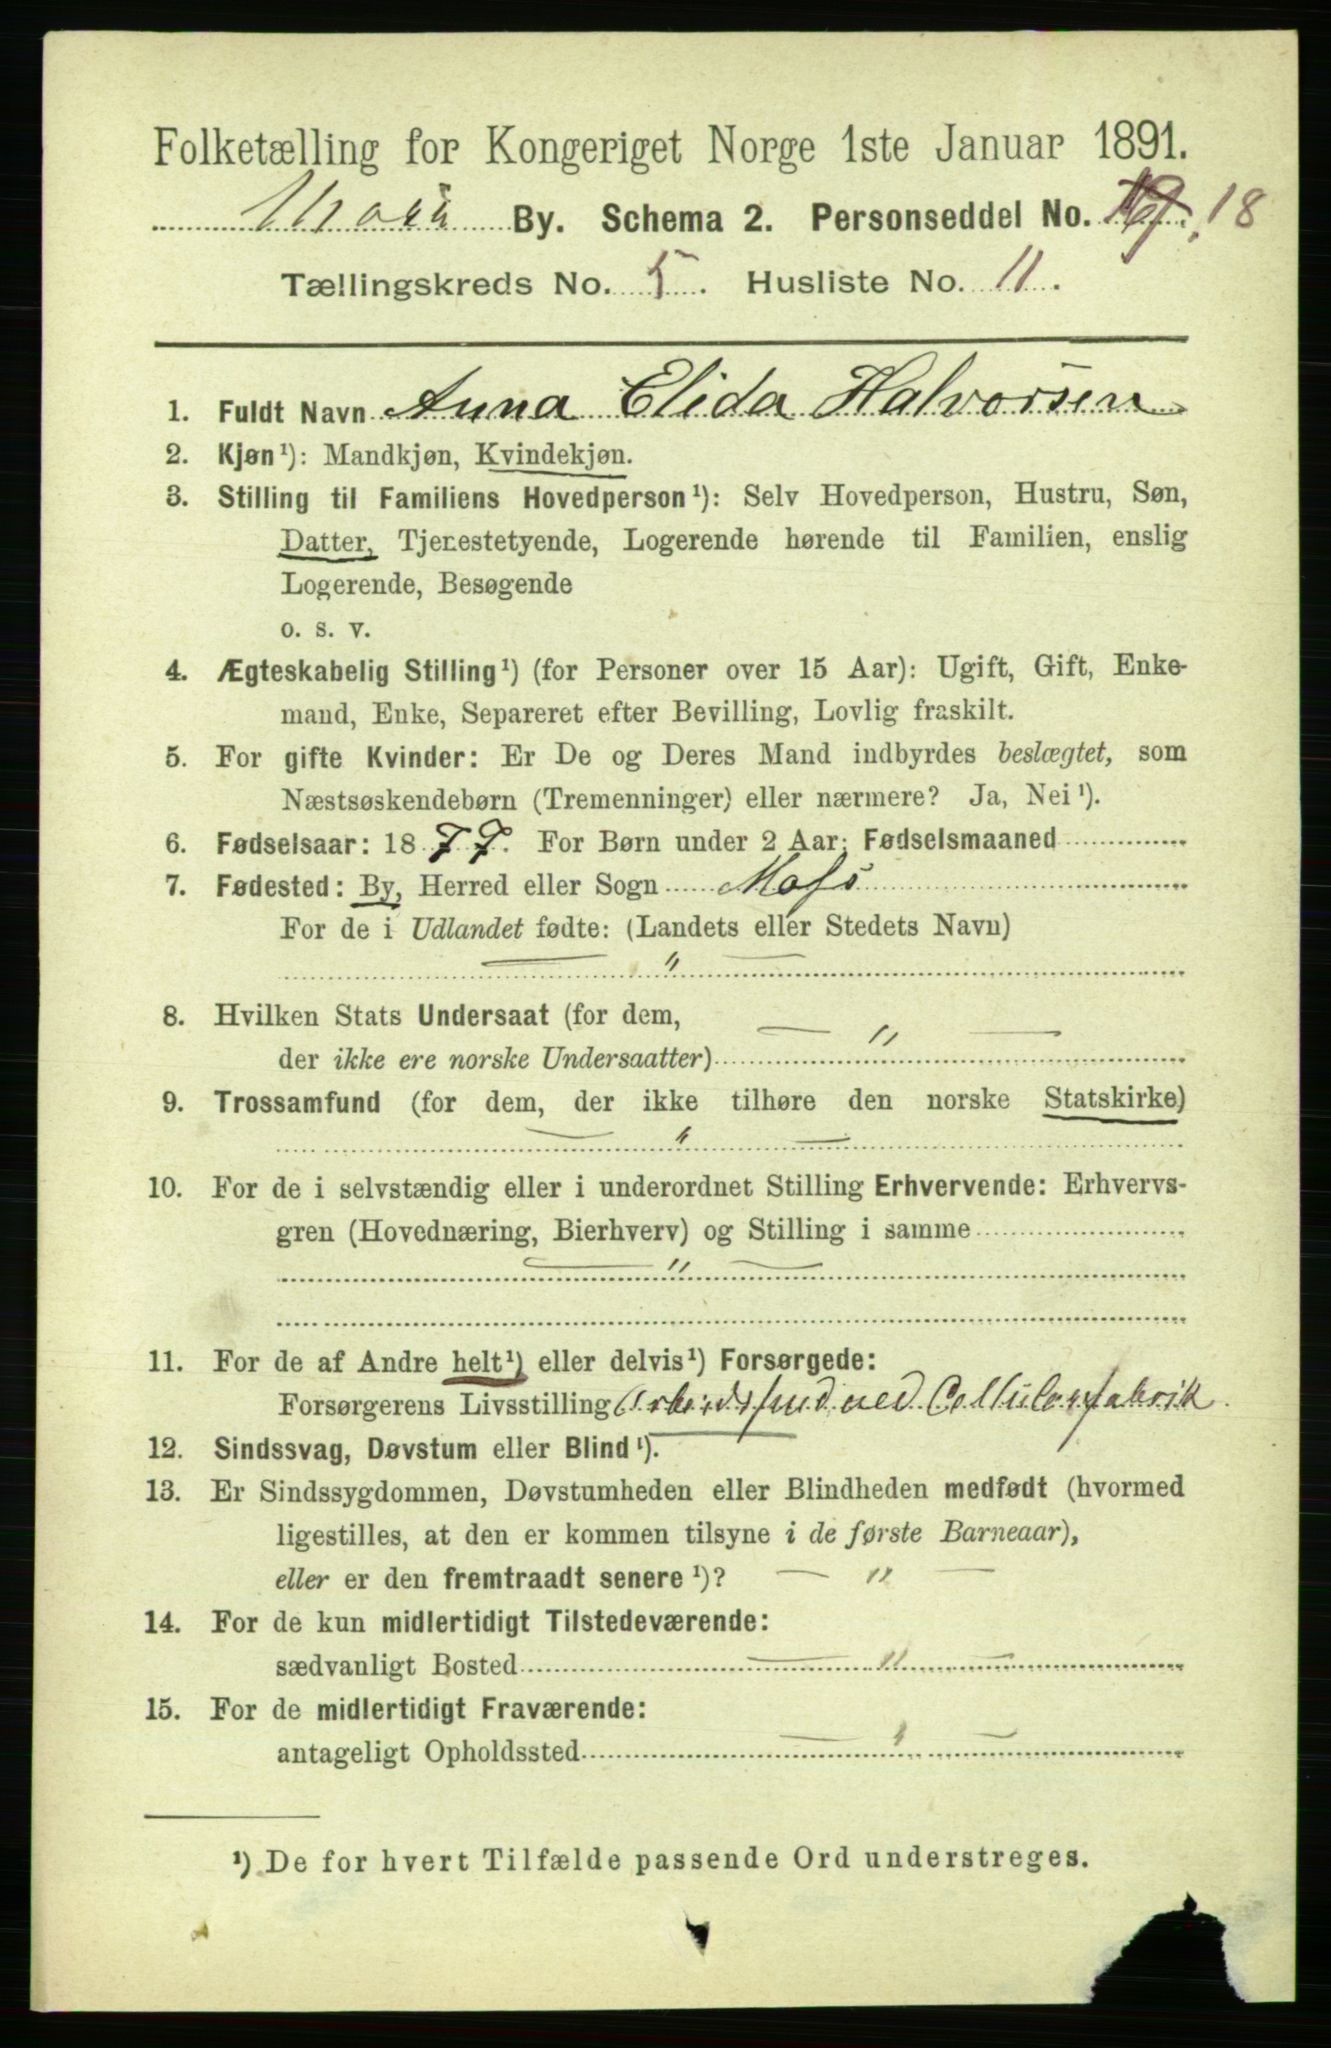 Folketælling for Kongeriget Norge 1ste Januar 1891.
Moss By. Schema 2. Personseddel No. 18
Tællingskreds No. 5. Husliste No. 11.
1. Fuldt Navn Anna Elida Halvorsen
2. Kjøn¹): Mandkjøn, Kvindekjøn.
3. Stilling til Familiens Hovedperson¹): Selv Hovedperson, Hustru, Søn,
Datter, Tjenestetyende, Logerende hørende til Familien, enslig
Logerende, Besøgende
o. s. v.
4. Ægteskabelig Stilling¹) (for Personer over 15 Aar): Ugift, Gift, Enke-
mand, Enke, Separeret efter Bevilling, Lovlig fraskilt.
5. For gifte Kvinder: Er De og Deres Mand indbyrdes beslægtet, som
Næstsøskendebørn (Tremenninger) eller nærmere? Ja, Nei¹).
6. Fødselsaar: 1877. For Børn under 2 Aar: Fødselsmaaned
7. Fødested: By, Herred eller Sogn Moss
For de i Udlandet fødte: (Landets eller Stedets Navn)
— " —
8. Hvilken Stats Undersaat (for dem,
der ikke ere norske Undersaatter) — " —
9. Trossamfund (for dem, der ikke tilhøre den norske Statskirke)
— " —
10. For de i selvstændig eller i underordnet Stilling Erhvervende: Erhvervs-
gren (Hovednæring, Bierhverv) og Stilling i samme
— " —
11. For de af Andre helt¹) eller delvis¹) Forsørgede:
Forsørgerens Livsstilling Arbeidsmand ved Cellulosefabrik
12. Sindssvag, Døvstum eller Blind¹).
13. Er Sindssygdommen, Døvstumheden eller Blindheden medfødt (hvormed
ligestilles, at den er kommen tilsyne i de første Barneaar),
eller er den fremtraadt senere¹)? — " —
14. For de kun midlertidigt Tilstedeværende:
sædvanligt Bosted — " —
15. For de midlertidigt Fraværende:
antageligt Opholdssted — " —
¹) De for hvert Tilfælde passende Ord understreges.